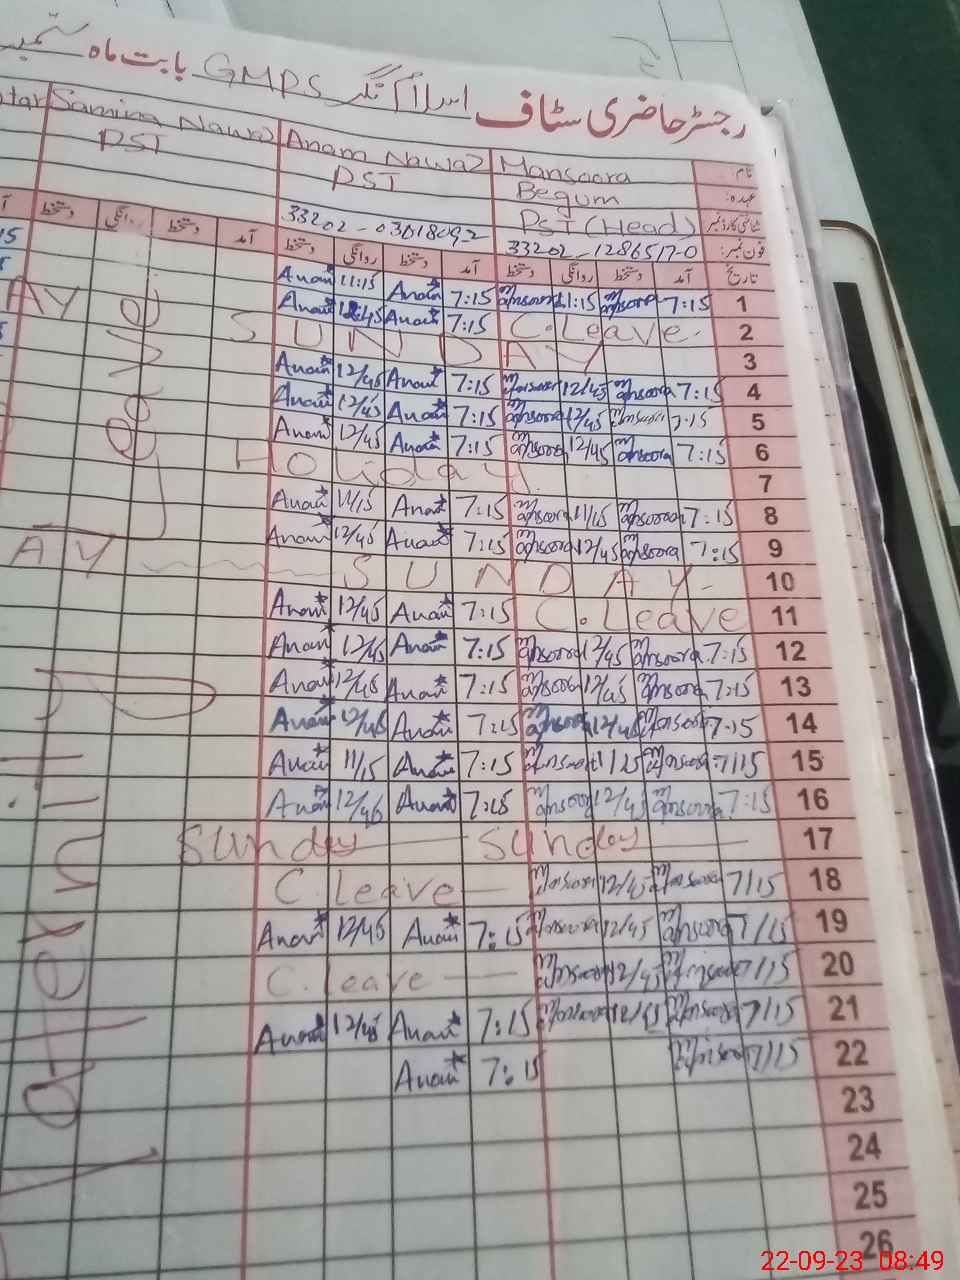 رجسٹر حاضری سٹاف GMPS بابت ماہ ستمبر
نام Mansoora Anam Nawaz Samina Nawaz
عہدہ Begum PST PST
شناختی کارڈ نمبر PST (Head) 33202-03018092
فون نمبر 33202-1286517-0
تاریخ آمد دستخط روانگی دستخط آمد دستخط روانگی دستخط آمد دستخط روانگی دستخط
1 7:15 Mansoora 11:15 Mansoora 7:15 Anam 11:15 Anam
2 C.Leave 7:15 Anam 12:45 Anam
3 SUNDAY
4 7:15 Mansoora 12/45 Mansoora 7:15 Anam 12/45 Anam
5 7:15 Mansoora 12/45 Mansoora 7:15 Anam 12/45 Anam
6 7:15 Mansoora 12/45 Mansoora 7:15 Anam 12/45 Anam
7 Holiday
8 7:15 Mansoora 11/15 Mansoora 7:15 Anam 11/15 Anam
9 7:15 Mansoora 12/45 Mansoora 7:15 Anam 12/45 Anam
10 SUNDAY
11 C.Leave 7:15 Anam 12/45 Anam
12 7:15 Mansoora 12/45 Mansoora 7:15 Anam 12/45 Anam
13 7:15 Mansoora 12/45 Mansoora 7:15 Anam 12/45 Anam
14 7:15 Mansoora 12/45 Mansoora 7:15 Anam 12/45 Anam
15 7/15 Mansoora 11/15 Mansoora 7:15 Anam 11/15 Anam
16 7:15 Mansoora 12/45 Mansoora 7:15 Anam 12/45 Anam
17 Sunday Sunday
18 7/15 Mansoora 12/45 Mansoora C.leave
19 7/15 Mansoora 12/45 Mansoora 7:15 Anam 12/45 Anam
20 7/15 Mansoora 12/45 Mansoora C.leave
21 7/15 Mansoora 12/45 Mansoora 7:15 Anam 12/45 Anam
22 7/15 Mansoora 7:15 Anam
23
24
25
26
22-09-23 08:49